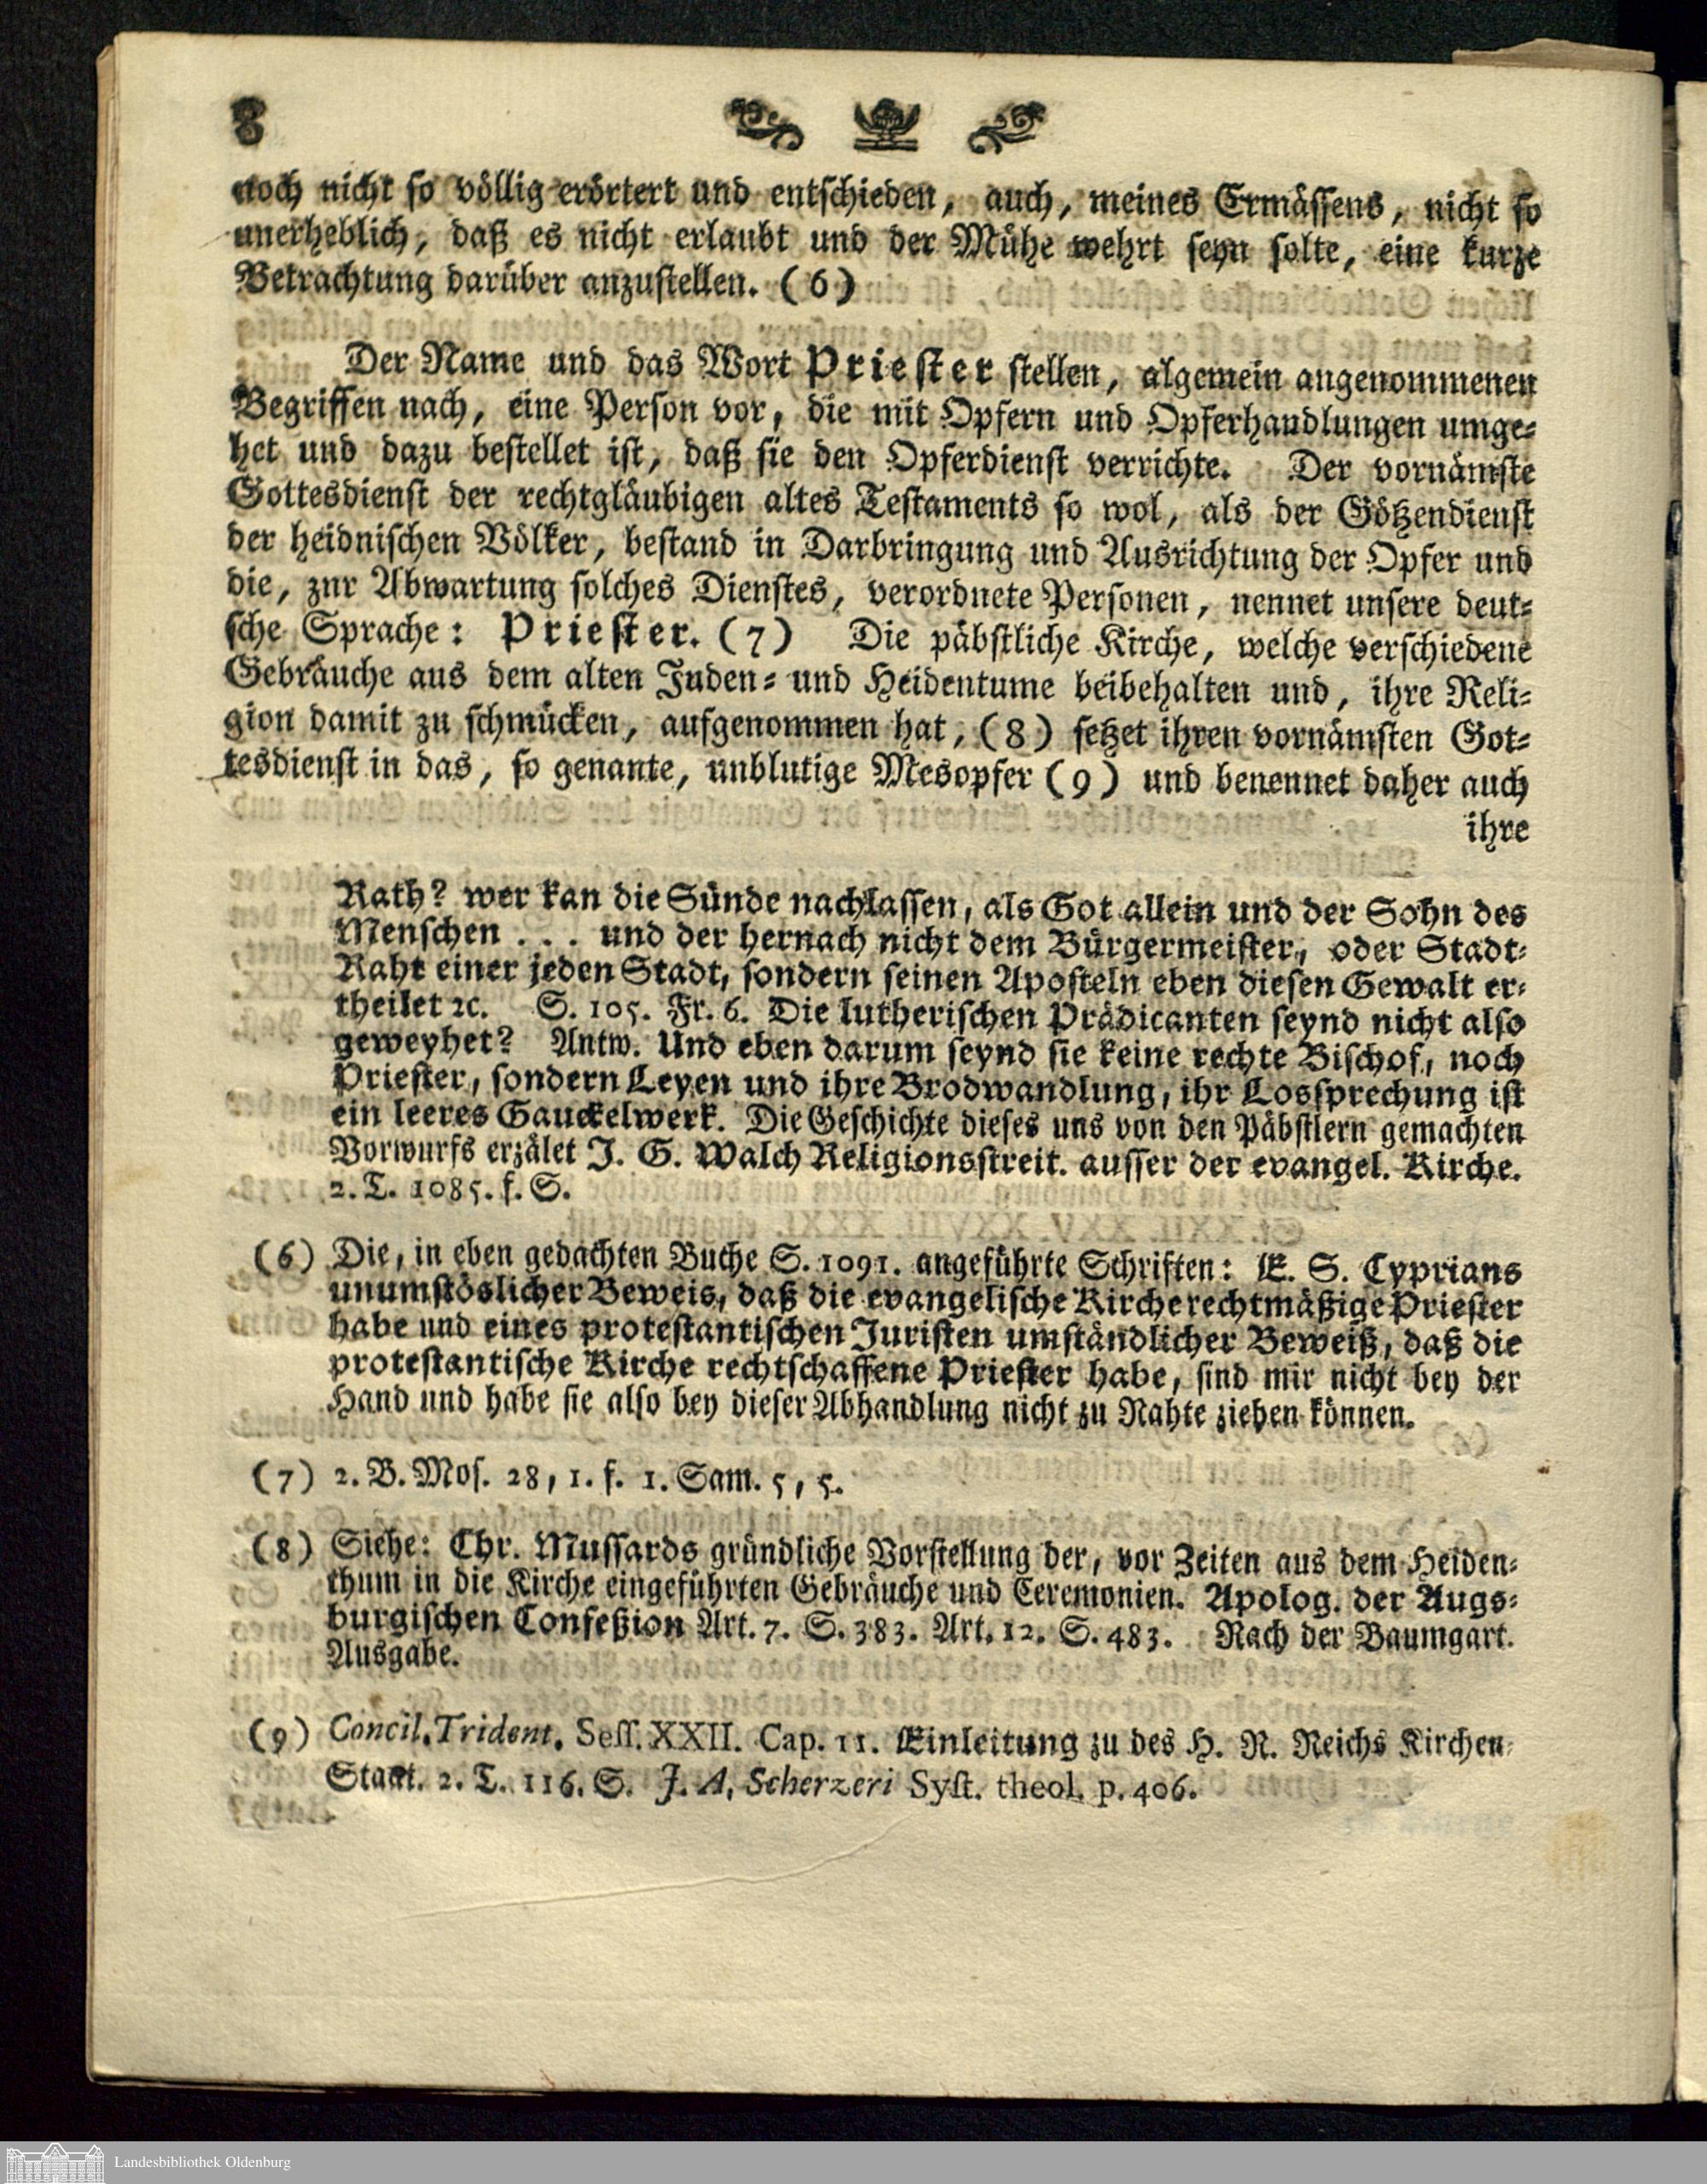 8
noch nicht so völlig erörtert und entschieden, auch, meines Ermässens, nicht so
unerheblich, daß es nicht erlaubt und der Mühe wehrt seyn solte, eine kurze
Betrachtung darüber anzustellen. (6)
Der Name und das Wort Priester stellen, algemein angenommenen
Begriffen nach, eine Person vor, die mit Opfern und Opferhandlungen umge-
het und dazu bestellet ist, daß sie den Opferdienst verrichte. Der vornämste
Gottesdienst der rechtgläubigen altes Testaments so wol, als der Götzendienst
der heidnischen Völker, bestand in Darbringung und Ausrichtung der Opfer und
die, zur Abwartung solches Dienstes, verordnete Personen, nennet unsere deut-
sche Sprache: Priester. (7) Die päbstliche Kirche, welche verschiedene
Gebräuche aus dem alten Juden- und Heidentume beibehalten und, ihre Reli-
gion damit zu schmücken, aufgenommen hat, (8) setzet ihren vornämsten Got-
tesdienst in das, so genante, unblutige Mesopfer (9) und benennet daher auch
ihre
Rath? wer kan die Sünde nachlassen, als Got allein und der Sohn des
Menschen . . . und der hernach nicht dem Bürgermeister, oder Stadt-
Raht einer jeden Stadt, sondern seinen Aposteln eben diesen Gewalt er-
theilet ꝛc. S. 105. Fr. 6. Die lutherischen Prädicanten seynd nicht also
geweyhet? Antw. Und eben darum seynd sie keine rechte Bischof, noch
Priester, sondern Leyen und ihre Brodwandlung, ihr Lossprechung ist
ein leeres Gauckelwerk. Die Geschichte dieses uns von den Päbstlern gemachten
Vorwurfs erzälet J. G. Walch Religionsstreit. ausser der evangel. Kirche.
2. T. 1085. f. S.
(6) Die, in eben gedachten Buche S. 1091. angeführte Schriften: E. S. Cyprians
unumstöslicher Beweis, daß die evangelische Kirche rechtmäßige Priester
habe und eines protestantischen Juristen umständlicher Beweiß, daß die
protestantische Kirche rechtschaffene Priester habe, sind mir nicht bey der
Hand und habe sie also bey dieser Abhandlung nicht zu Rahte ziehen können.
(7) 2. B. Mos. 28, 1. f. 1. Sam. 5, 5.
(8) Siehe: Chr. Mussards gründliche Vorstellung der, vor Zeiten aus dem Heiden-
thum in die Kirche eingeführten Gebräuche und Ceremonien. Apolog. der Augs-
burgischen Confeßion Art. 7. S. 383. Art. 12. S. 483. Nach der Baumgart.
Ausgabe.
(9) Concil. Trident. Sess. XXII. Cap. 11. Einleitung zu des H. R. Reichs Kirchen-
Staat. 2. T. 116. S. J. A. Scherzeri Syst. theol. p. 406.
Landesbibliothek Oldenburg